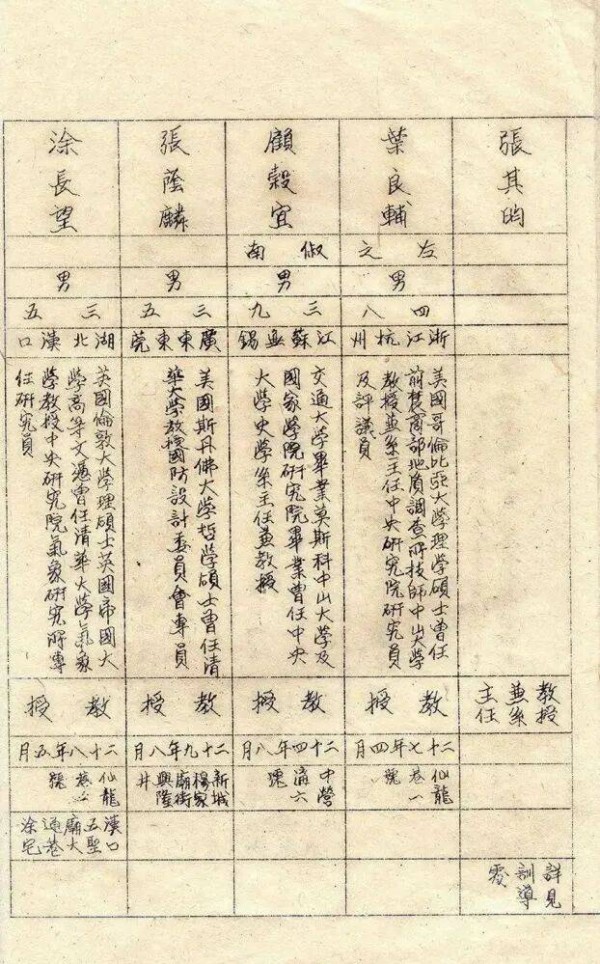 張其昀
教授
兼系
主任
詳見
訓導
處
葉良輔
左之
男
四八
浙江杭州
美國哥倫比亞大學理學碩士曾任
前農商部地质調查所技師中山大學
教授兼系主任中央研究院研究員
及評議員
教授
二十七年四月
仙龍
巷一
號
顧穀宜
俶南
男
三九
江蘇無錫
交通大學畢業莫斯科中山大學及
國家學院研究院畢業曾任中央
大學史學系主任兼教授
教授
二十四年八月
中營
溝六
號
張蔭麟
男
三五
廣東東莞
美國斯丹佛大學哲學碩士曾任清
華大學教授國防設計委員會專員
教授
二十九年八月
新城
楊家
廟街
興隆
井
涂長望
男
三五
湖北漢口
英國倫敦大學理碩士英國帝國大
學高等文憑曾任清華大學氣象
學教授中央研究院氣象研究所專
任研究員
教授
二十八年五月
仙龍
巷六
號
漢口
五聖
廟大
通巷
涂宅